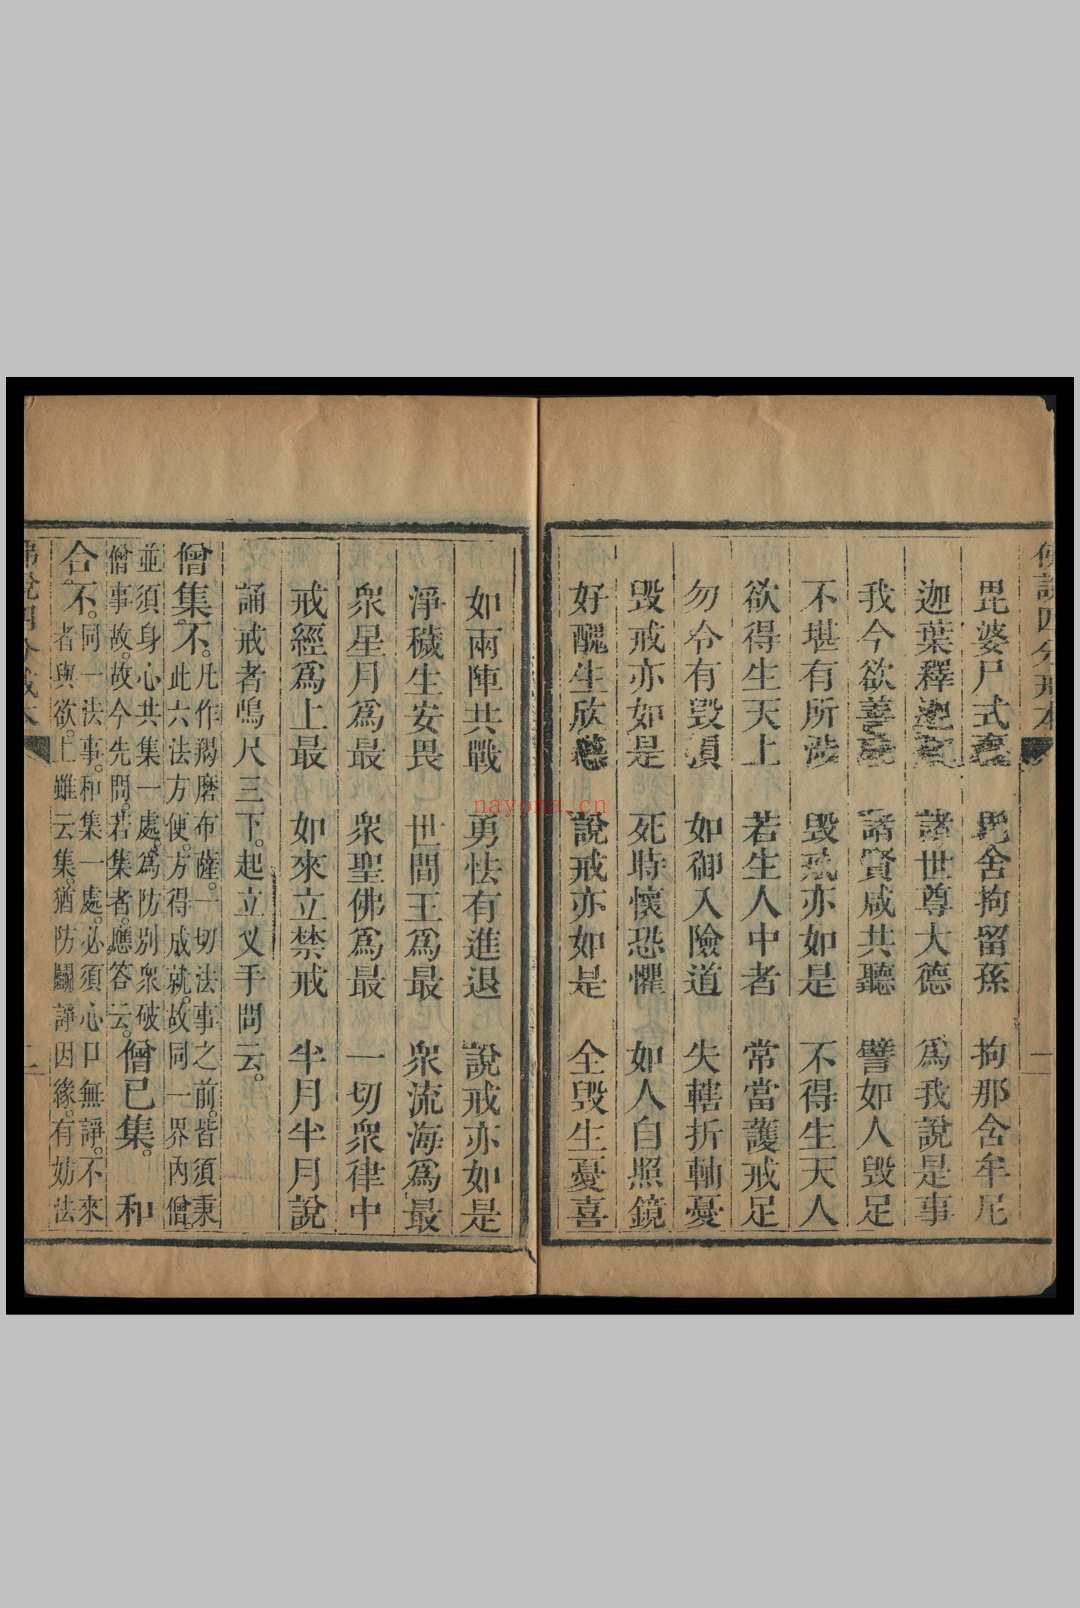 佛說四分戒本
一
毘婆尸式棄 毘舍拘留孫 拘那含牟尼
迦葉釋迦文 諸世尊大德 爲我說是事
我今欲善說 諸賢咸共聽 譬如人毀足
不堪有所涉 毀戒亦如是 不得生天人
欲得生天上 若生人中者 常當護戒足
勿令有毀損 如御入險道 失轄折軸憂
毀戒亦如是 死時懷恐懼 如人自照鏡
好醜生欣慼 說戒亦如是 全毀生憂喜
如兩陣共戰 勇怯有進退 說戒亦如是
淨穢生安畏 世間王爲最 衆流海爲最
衆星月爲最 衆聖佛爲最 一切衆律中
戒經爲上最 如來立禁戒 半月半月說
誦戒者鳴尺三下。起立叉手問云。
僧集不。凡作羯磨布薩。一切法事之前。皆須秉
此六法方便。方得成就。故同一界內僧。
並須身心共集一處。爲防別衆破
僧事故。故今先問。若集者。應答云。僧已集。 和
合不。同一法事。和集一處。必須心口無諍。不來
者與欲。上雖云集。猶防鬬諍因緣。有妨法
佛說四分戒本
二
nayona.cn